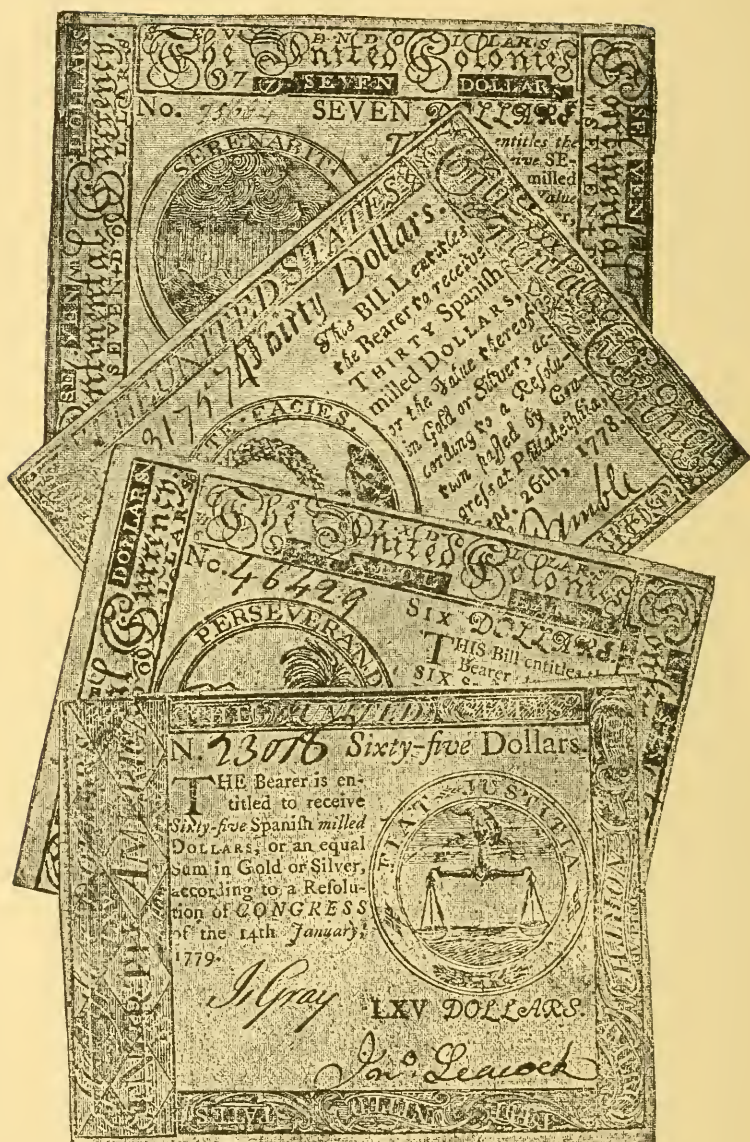 The United Colonies
SEVEN DOLLARS
No. SEVEN DOLLARS
SERENABIT
entitles the
SE-
milled
Value
Continental Currency
DOLLARS
Continental
THE UNITED STATES
317574 Thirty Dollars.
This BILL entitles
the Bearer to receive
THIRTY Spanish
milled DOLLARS,
or the Value thereof
in Gold or Silver, ac-
cording to a Resolu-
tion passed by Con-
gress at Philadelphia,
Sept. 26th, 1778.
Gamble
FACIES.
The United Colonies
No. 46429 SIX DOLLARS.
THIS Bill entitles
Bearer
SIX
PERSEVERAND
DOLLARS
Currency
N. 23018 Sixty-five Dollars.
THE Bearer is en-
titled to receive
Sixty-five Spaniſh milled
DOLLARS, or an equal
Sum in Gold or Silver,
according to a Reſolu-
tion of CONGRESS
of the 14th January,
1779.
FIAT JUSTITIA
Js Gray
LXV DOLLARS.
Jno. Leacock
NORTH AMERICA